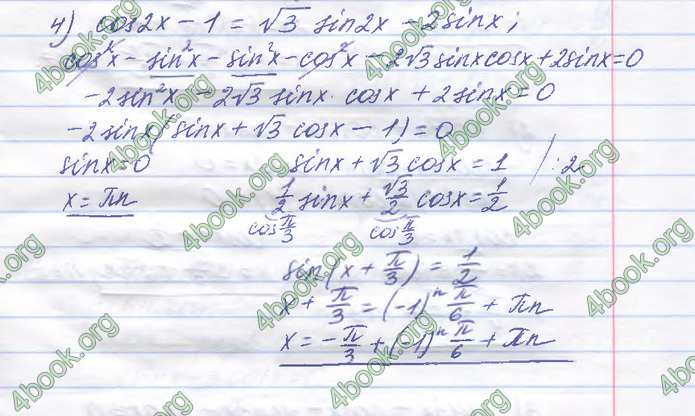 4) cos2x - 1 = √3 sin2x - 2sinx;
cos²x - sin²x - sin²x - cos²x - 2√3 sinxcosx + 2sinx = 0
- 2sin²x - 2√3 sinx · cosx + 2sinx = 0
- 2sinx(sinx + √3 cosx - 1) = 0
sinx = 0 sinx + √3 cosx = 1 / : 2
x = πn 1/2 sinx + √3/2 cosx = 1/2
cos π/3 cos π/3
sin(x + π/3) = 1/2
x + π/3 = (-1)ⁿ π/6 + πn
x = - π/3 + (-1)ⁿ π/6 + πn
4book.org